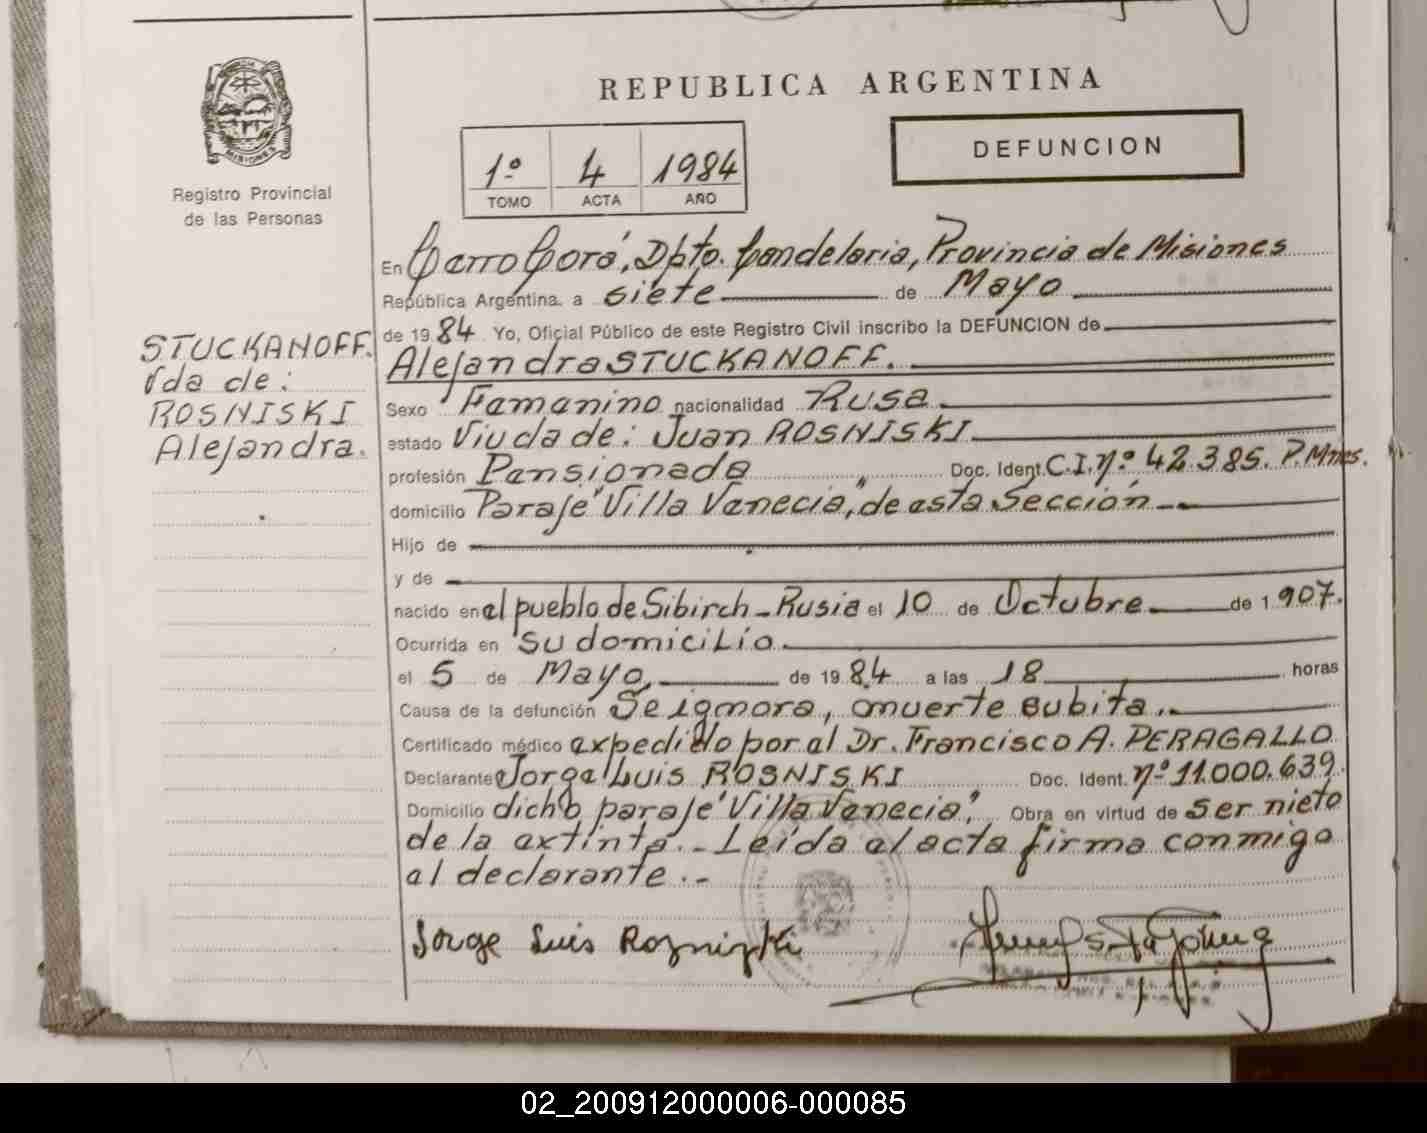 REPUBLICA ARGENTINA
DEFUNCION
1º 4 1984
TOMO ACTA AÑO
MISIONES
Registro Provincial
de las Personas
STUCKANOFF.
Vda de:
ROSNISKI
Alejandra.
En Cerro Corá, Dpto. Candelaria, Provincia de Misiones
República Argentina. a siete de Mayo
de 1984 Yo, Oficial Público de este Registro Civil inscribo la DEFUNCION de
Alejandra STUCKANOFF.
Sexo Femenino nacionalidad Rusa
estado Viuda de: Juan ROSNISKI
profesión Pensionada Doc. Ident. C.I. nº 42.385. P. Mnes.
domicilio Paraje "Villa Venecia", de esta Sección
Hijo de
y de
nacido en el pueblo de Sibirch - Rusia el 10 de Octubre de 1907.
Ocurrida en su domicilio
el 5 de Mayo de 1984 a las 18 horas
Causa de la defunción Se ignora, muerte subita.
Certificado médico expedido por el Dr. Francisco A. PERAGALLO
Declarante Jorge Luis ROSNISKI Doc. Ident. nº 11.000.639.
Domicilio dicho paraje "Villa Venecia", Obra en virtud de ser nieto
de la extinta.- Leída el acta firma conmigo
el declarante.-
Jorge Luis Rozniski
02_200912000006-000085